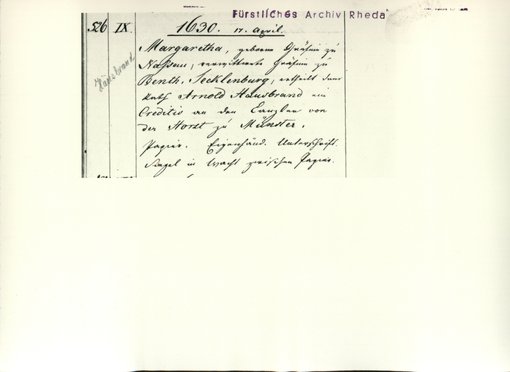 Fürstliches Archiv Rheda
526 IX. 1630. 17. April.
Hausbrand
Margaretha, geborene Gräfin zu
Nassau, verwittwete Gräfin zu
Benth. Tecklenburg, ertheilt dem
Arnold Hausbrand ein
Creditiv an den Canzler von
der Horst zu Münster.
Papier. Eigenhänd. Unterschrift.
Siegel in Wachs zwischen Papier.